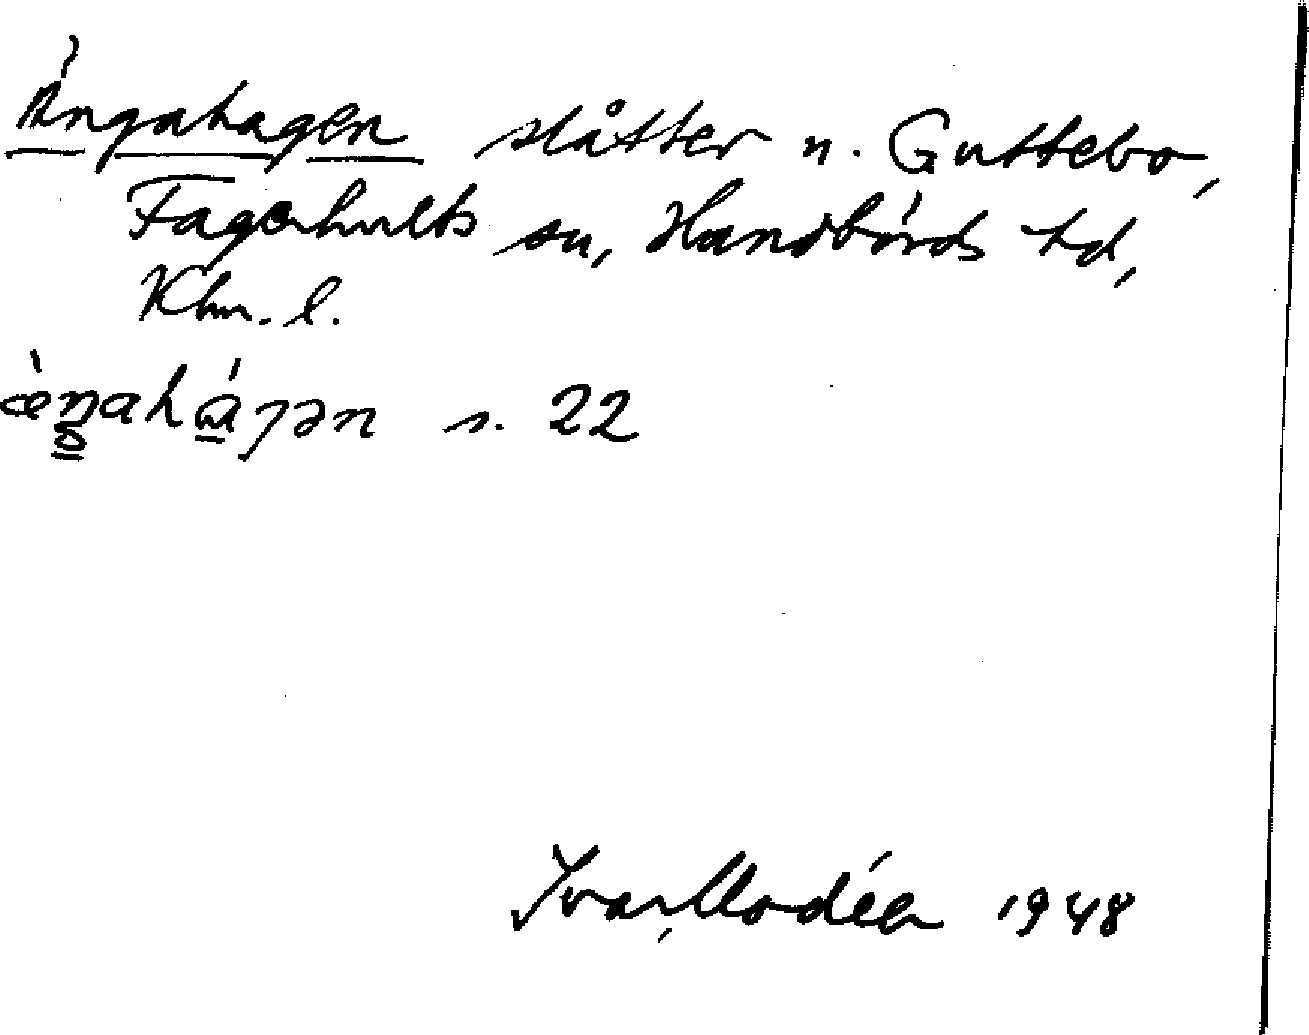 Ängahagen slåtter n. Guttebo,
Fagerhults sn, Handbörds hd,
Klm. l.
s. 22
Ivar Modéer 1948